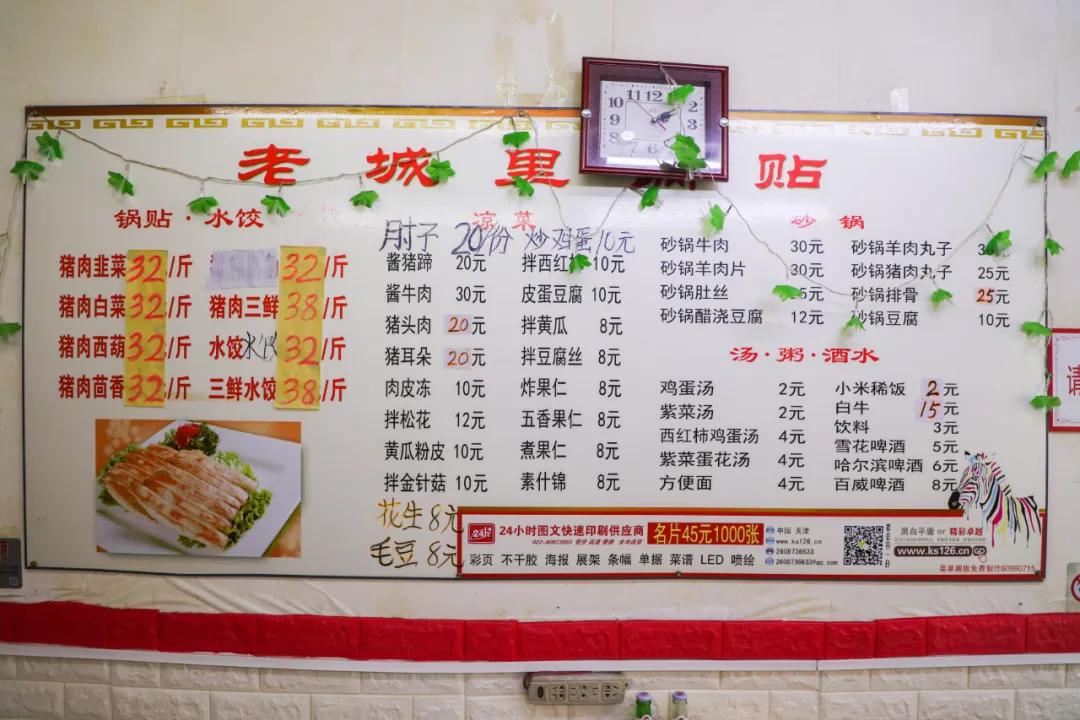 老城里 贴
锅贴·水饺
猪肉韭菜 32/斤
32/斤
猪肉白菜 32/斤
猪肉三鲜 38/斤
猪肉西葫 32/斤
水饺 32/斤
猪肉茴香 32/斤
三鲜水饺 38/斤
凉菜
肘子 20/份 炒鸡蛋10元
酱猪蹄 20元
拌西红柿 10元
酱牛肉 30元
皮蛋豆腐 10元
猪头肉 20元
拌黄瓜 8元
猪耳朵 20元
拌豆腐丝 8元
肉皮冻 10元
炸果仁 8元
拌松花 12元
五香果仁 8元
黄瓜粉皮 10元
煮果仁 8元
拌金针菇 10元
素什锦 8元
花生 8元
毛豆 8元
砂锅
砂锅牛肉 30元
砂锅羊肉丸子
砂锅羊肉片 30元
砂锅猪肉丸子 25元
砂锅肚丝 5元
砂锅排骨 25元
砂锅醋浇豆腐 12元
砂锅豆腐 10元
汤·粥·酒水
鸡蛋汤 2元
小米稀饭 2元
紫菜汤 2元
白牛 15元
西红柿鸡蛋汤 4元
饮料 3元
紫菜蛋花汤 4元
雪花啤酒 5元
方便面 4元
哈尔滨啤酒 6元
百威啤酒 8元
24小时图文快速印刷供应商
名片45元1000张
彩页 不干胶 海报 展架 条幅 单据 菜谱 LED 喷绘
中国 天津
www.ks126.cn
2608736633
2608736633@qq.com
黑白平庸 or 精彩卓越
www.ks126.cn
菜单展板免费制作60990715
请
10 11 12 1 2